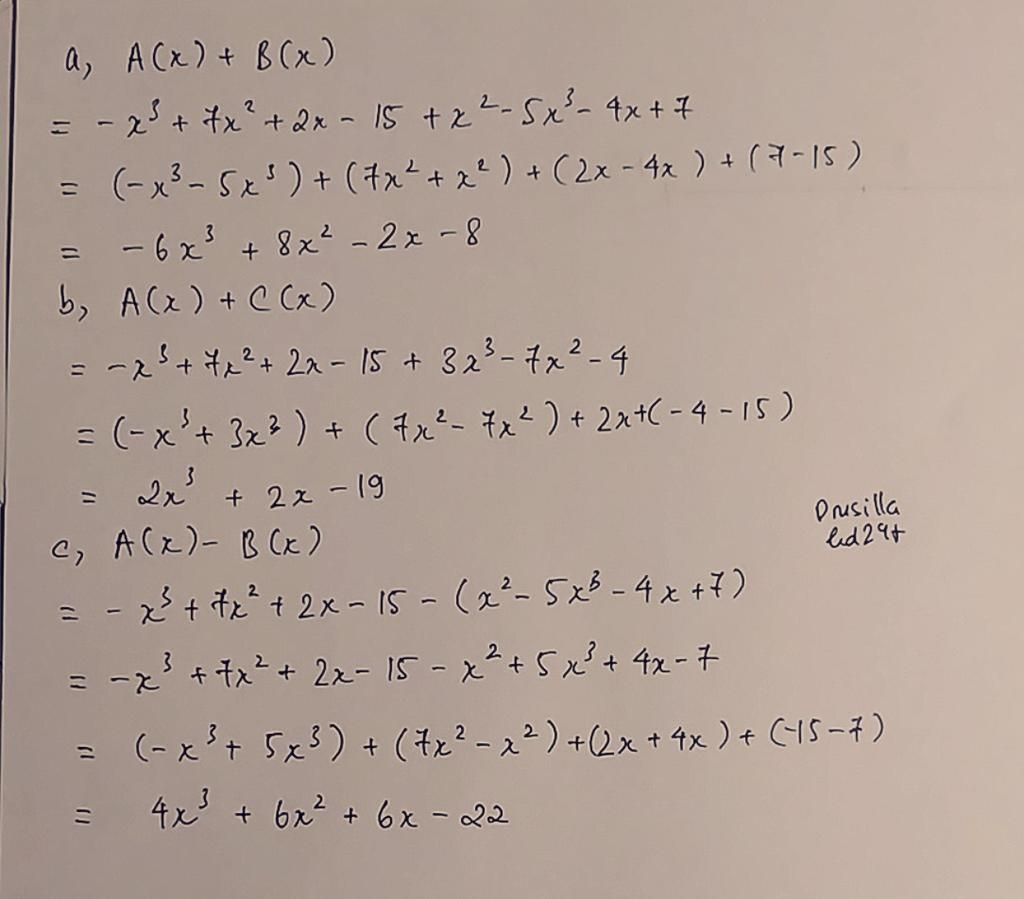 a, A(x) + B(x)
= - x³ + 7x² + 2x - 15 + x² - 5x³ - 4x + 7
= (-x³ - 5x³) + (7x² + x²) + (2x - 4x) + (7-15)
= -6x³ + 8x² - 2x - 8
b, A(x) + C(x)
= -x³ + 7x² + 2x - 15 + 3x³ - 7x² - 4
= (-x³ + 3x³) + (7x² - 7x²) + 2x+(-4-15)
= 2x³ + 2x - 19
Drusilla
c, A(x) - B(x)
= - x³ + 7x² + 2x - 15 - (x² - 5x³ - 4x + 7)
= -x³ + 7x² + 2x - 15 - x² + 5x³ + 4x - 7
= (-x³ + 5x³) + (7x² - x²) + (2x + 4x) + (-15-7)
= 4x³ + 6x² + 6x - 22